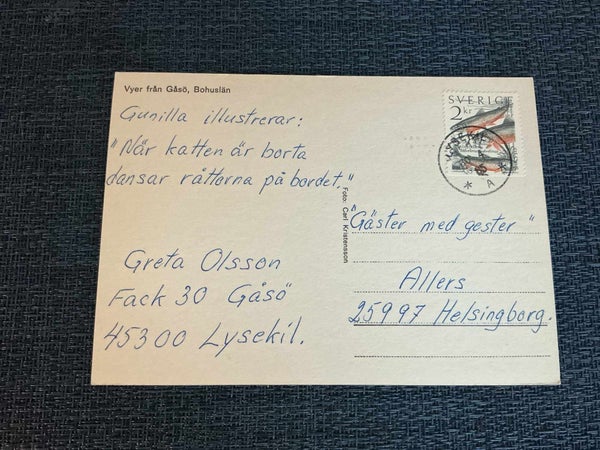 Vyer från Gåsö, Bohuslän
Gunilla illustrerar:
"När katten är borta
dansar råttorna på bordet."
Greta Olsson
Fack 30 Gåsö
45300 Lysekil.
Foto: Carl Kristensson
SVERIGE
2 kr
A
"Gäster med gester"
Allers
25997 Helsingborg.